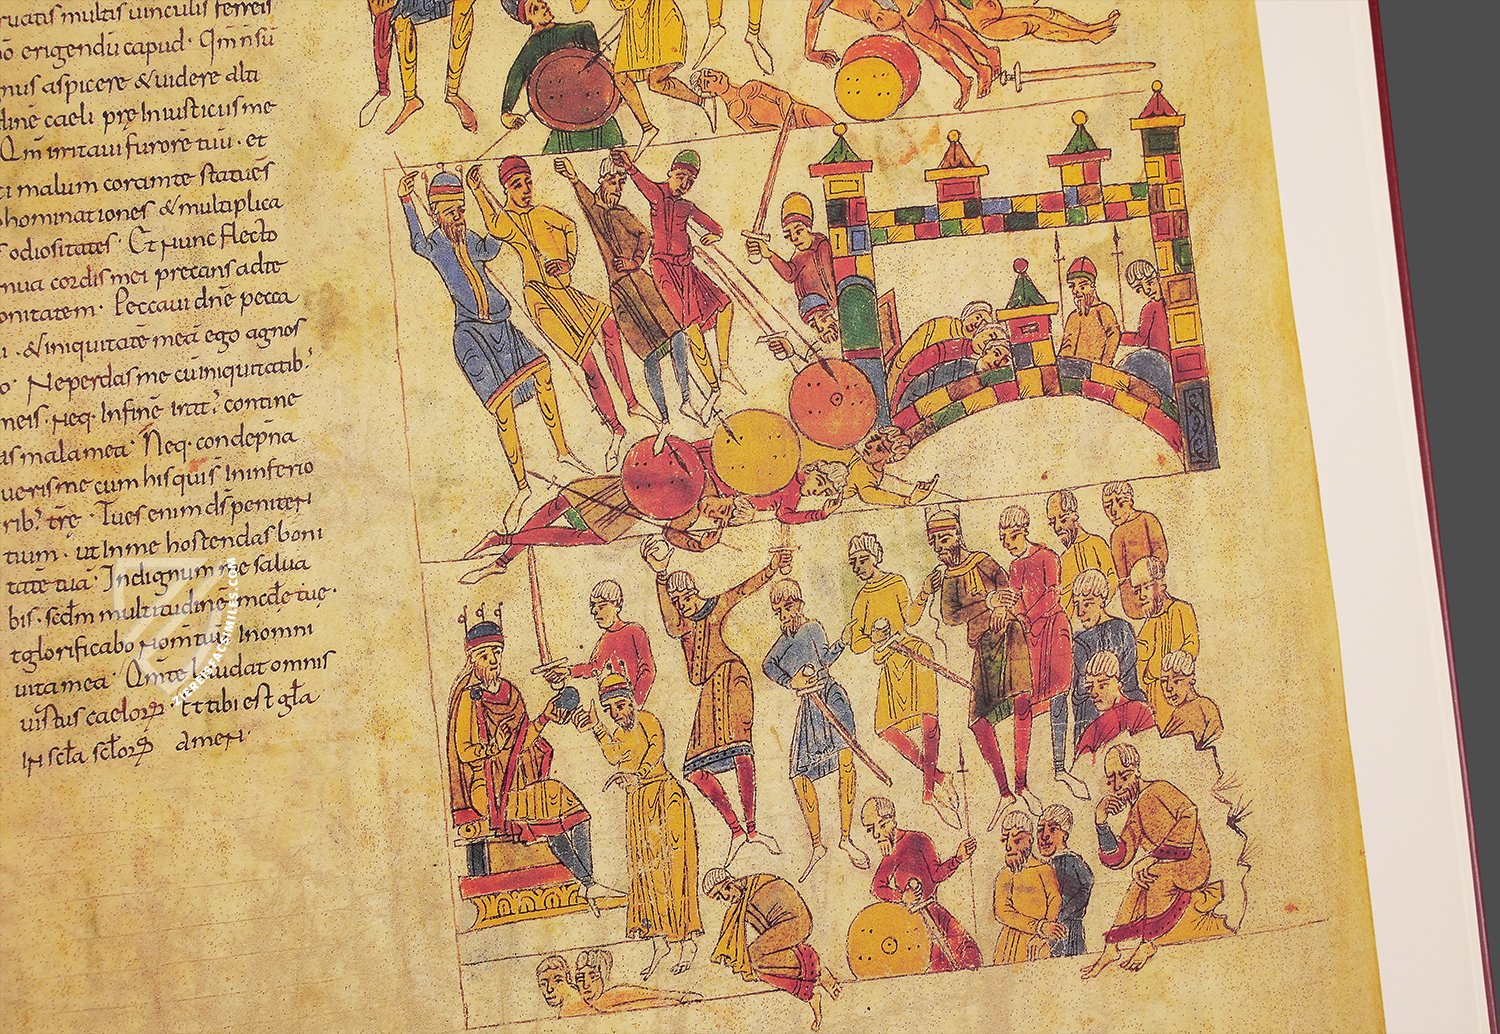 ruatis multis uinculis ferreis
erigendū capud · Qm̄ n sū
nus aspicere & uidere alti
dine caeli pre Iniusticiis me
Qm̄ irritaui furorē tuū · et
malum coram te statues
hominationes & multiplica
odiositates · Et Nunc flecto
nua cordis mei precans ad te
onitatem · Peccaui dn̄e pecca
· & iniquitatē meā ego agnos
o · Ne perdas me cū iniquitatib:
meis · Neq · Infinē irat: contine
as mala mea · Neq · condepna
ueris me cum his qui s̄ In inferio
rib: tr̄e · Tu es enim ds̄ peniten
tium · ut In me hostendas boni
tatē tuā · Indignum me salua
bis · sc̄dm multitudinē mc̄de tuę ·
&glorificabo Nom̄ tuū In omni
uita mea · Qm̄ te laudat omnis
uirtus caelorꝝ · & tibi est gl̄a
In scl̄a scl̄orꝝ amen
ZIEREISFACSIMILES.COM